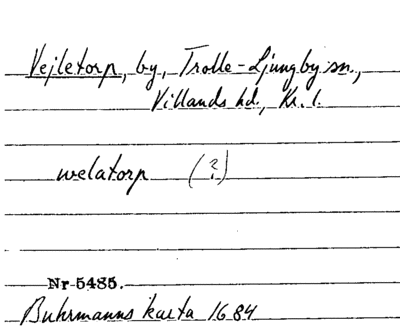 Vejletorp, by, Trolle-Ljungby sn.,
Villands hd., Kr. l.
welatorp (?)
Nr 5485.
Buhrmanns karta 1684